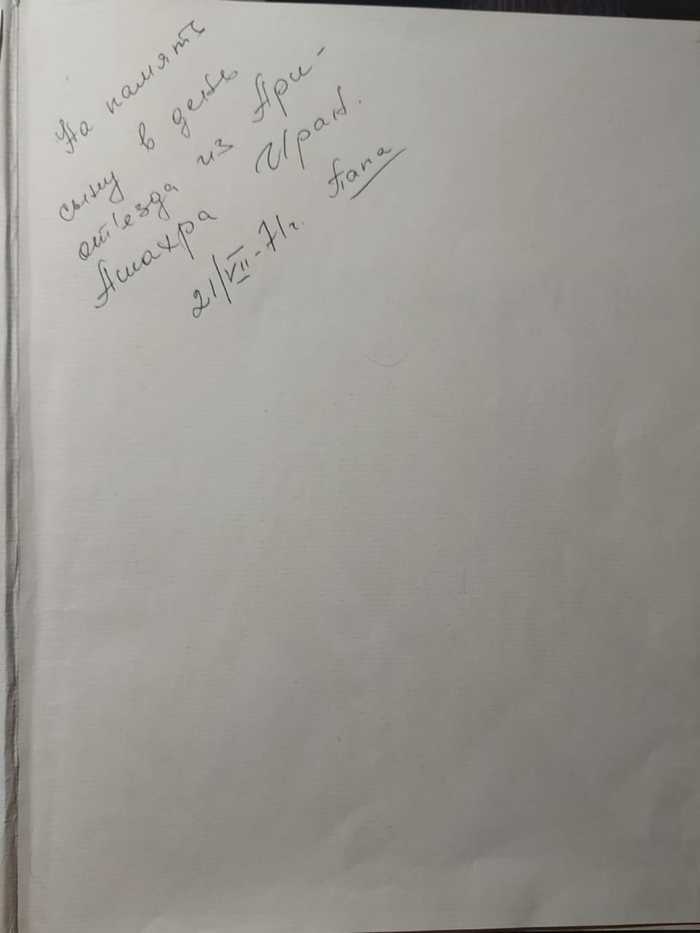 На память
сыну в день
от'езда из Ари-
Ашахра Иран.
21/VII-71г. Папа